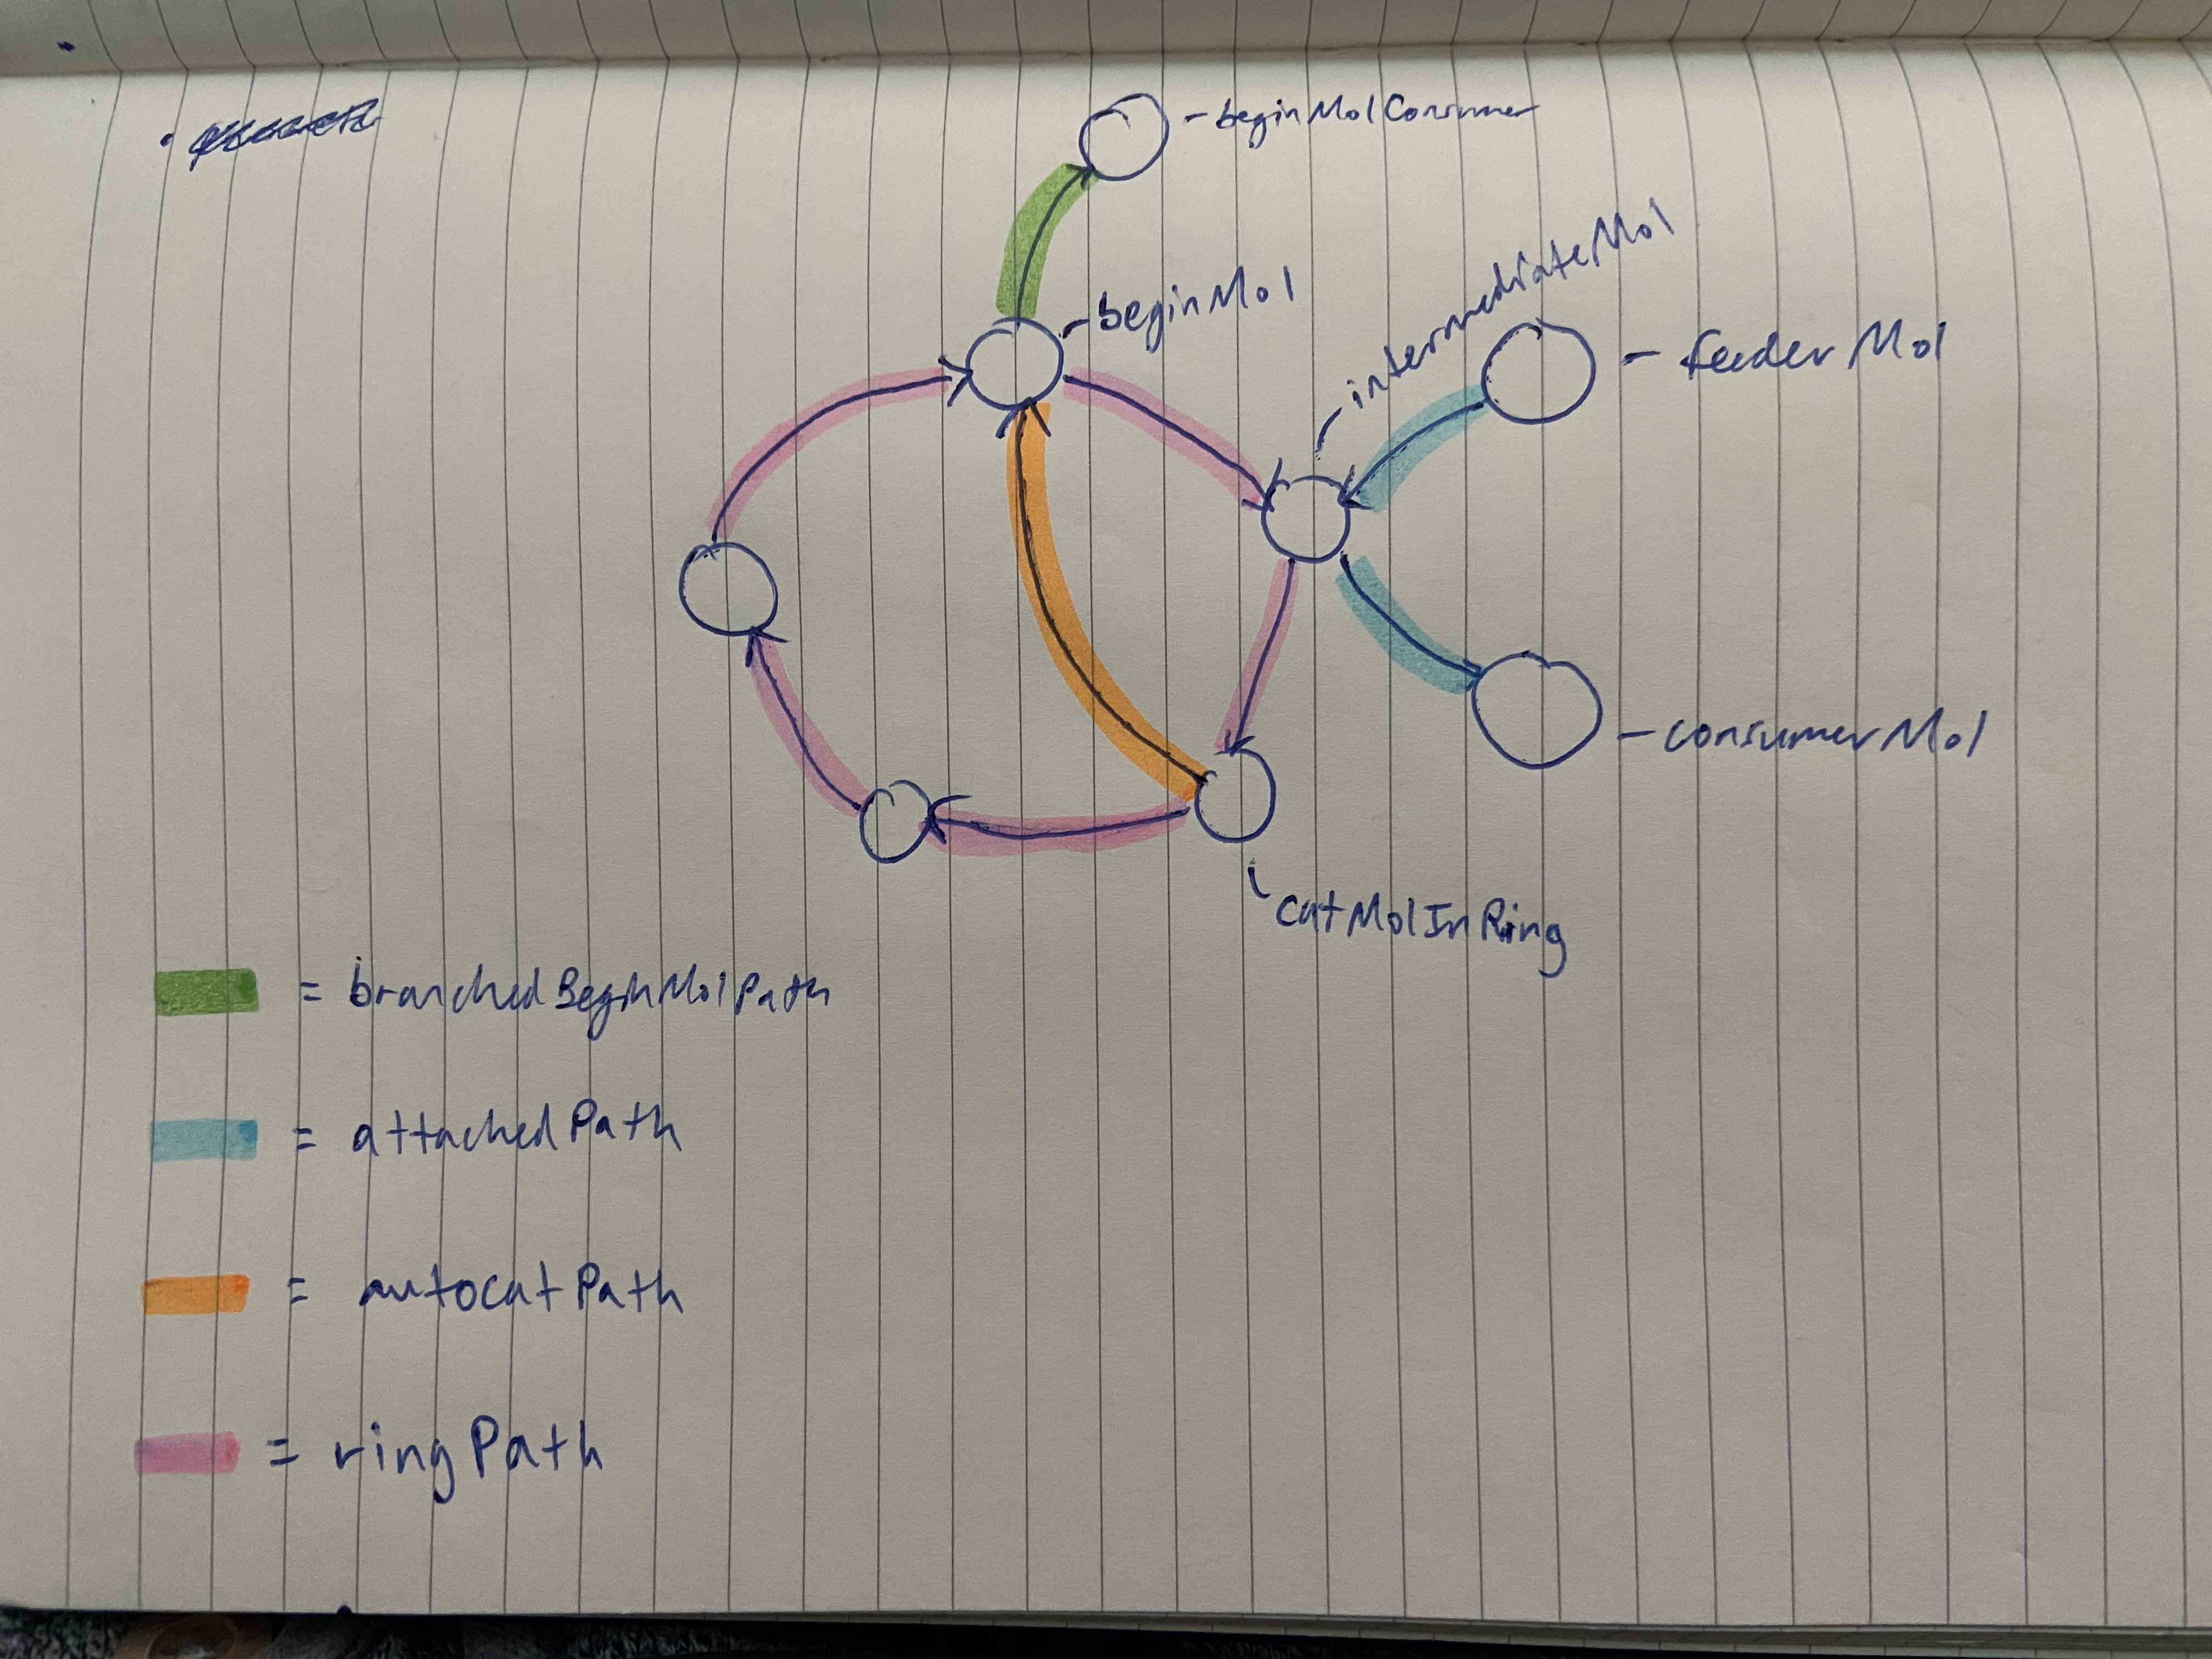 - beginMolConsumer
- beginMol
intermediateMol
- feederMol
- consumerMol
catMolInRing
= branchedBeginMolPath
= attachedPath
= autocatPath
= ringPath